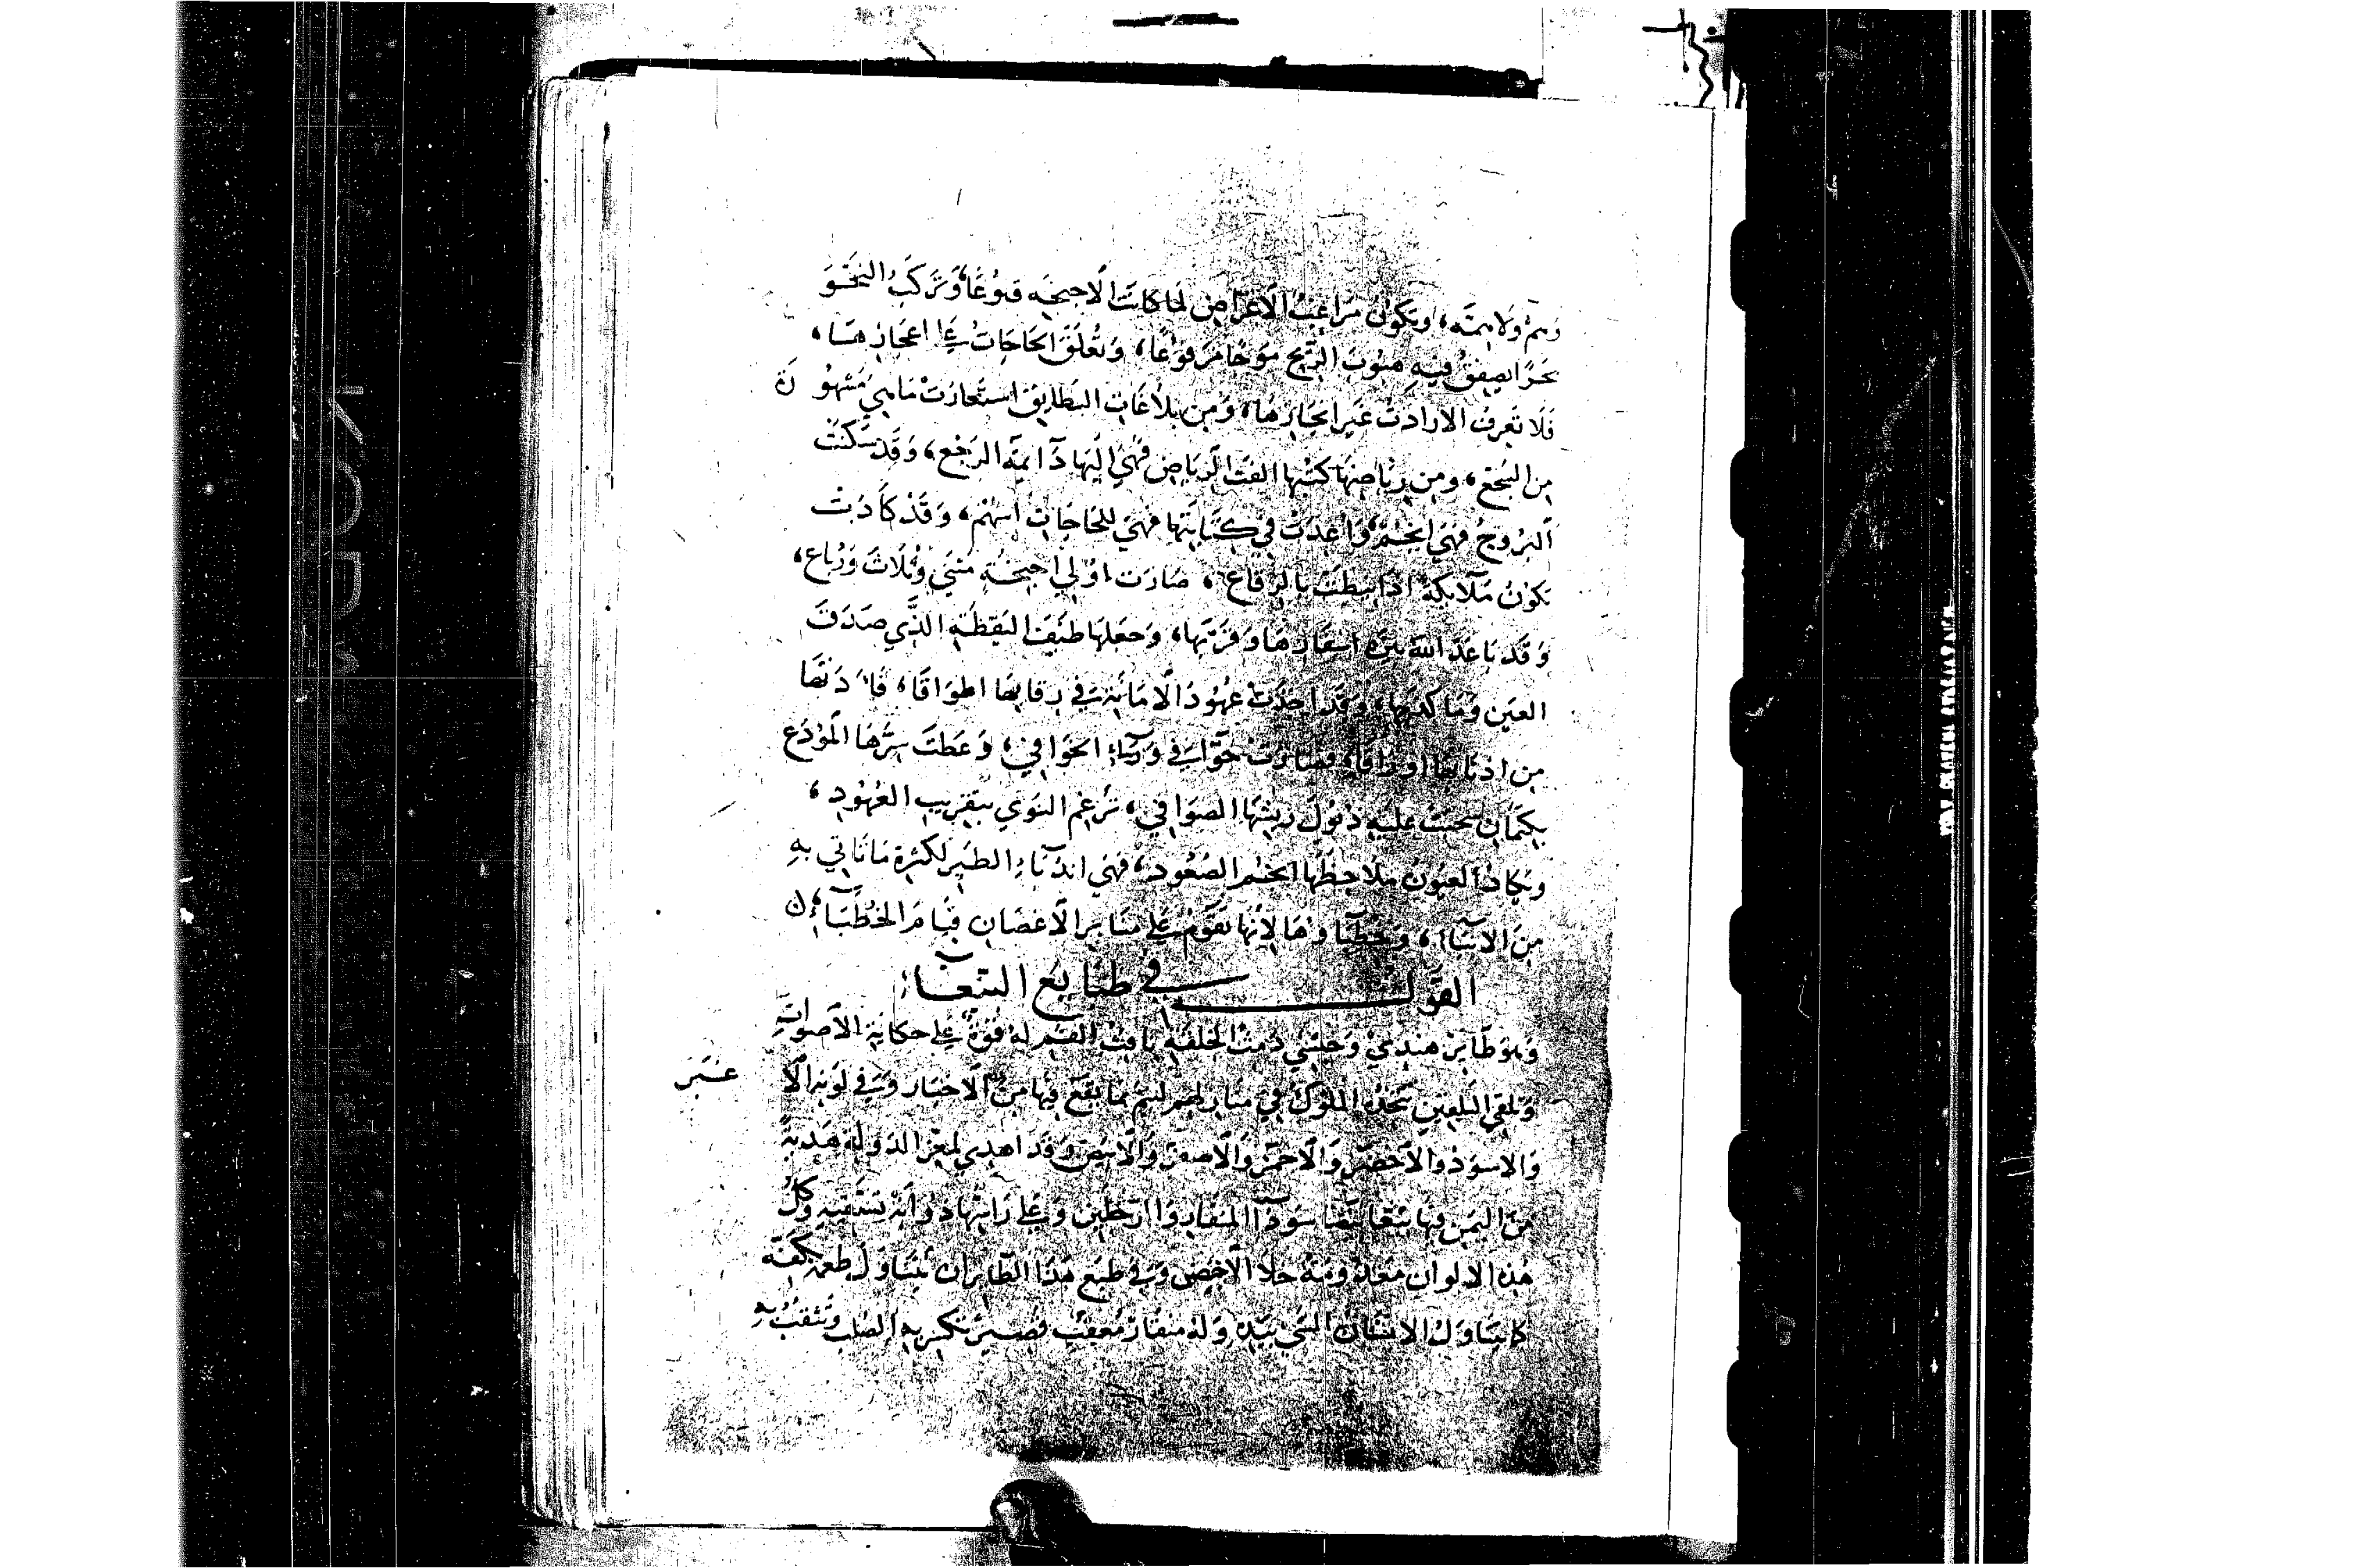 وهم ولا همة، وتكون مراغب الاغراض لما كانت الاجنحه قلوعًا، وتركب الجو
بحرًا يصفق فيه هبوب الريح موجا مرفوعًا، وتعلق الحاجات على اعجازها،
فلا تعرف الارادت غير انجازها، ومن بلاغات البطايق استعارت ما هي مشهورة
من السجع، ومن رياض كتبها الفت الرياض فهي اليها دآئمة الرجع، وقد سكنت
البروج فهي انجم، واعدت في كنانتها فهي للحاجات اسهم، وقد كادت
تكون ملآئكة اذا نيطت بالرقاع، صارت اولي اجنحة مثنى وثلاث ورباع،
وقد باعد الله بين اسفارها وقربها، وجعلها طيف اليقظة الذي صدق
العين وما كذبها، وقد اخذت عهود الامانة في رقابها اطواقًا، فادتها
من اذنابها اوراقًا، فصارت خوافي ورآء الخوافي، وغطت سرها المودع
بكتمان سحبت عليه ذيول ريشها الصوافي، ترغم النوى بتقريب العهود،
وتكاد العيون تلاحظها انجم السعود، فهي انبيآء الطير لكثرة ما تاتي به
من الانبآء، وخطبآوها لانها تقوم على منابر الاغصان قيام الخطبآء،
القول في طبايع الببغآء
وهو طاير هندي وحبشي دمث الخلقة ثاقب الفهم له قوة على حكاية الاصوات
وتلقي التلقين تتخذه الملوك في منازلهم لينم بما يقع فيها من الاخبار وفي لونه الا
غبر
والاسود والاخضر والاحمر والاصفر والابيض وقد اهدي لمعز الدولة هدية
من اليمن فيها ببغا بيضا سودآ المنقار والرجلين وعلى راسها ذوابة فستقيه وكل
هذه الالوان معدومة خلا الاخضر وفي طبع هذا الطاير ان يتناول طعمه بكفه
كما يتناول الانسان الشي بيده وله منقار معقف قصير يكسر به الصلب ويثقب به